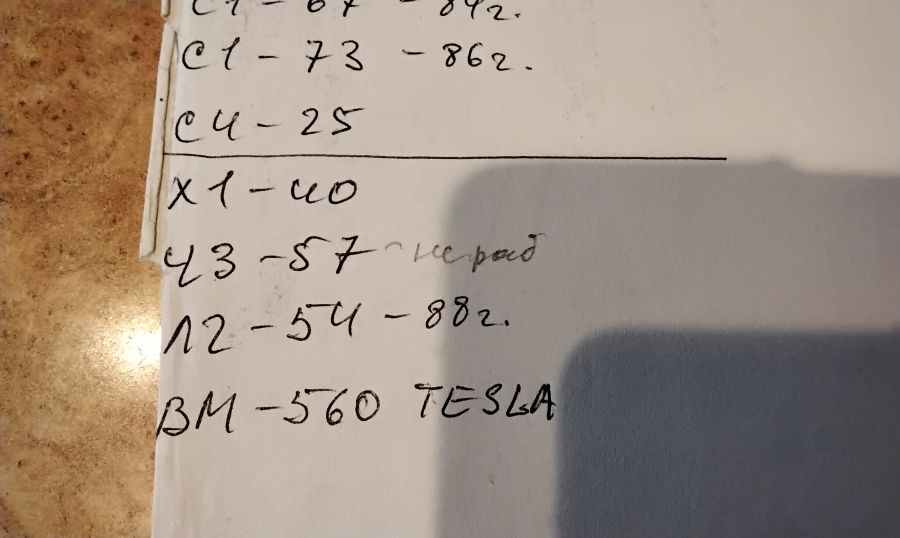 С1 - 67 - 84г.
С1 - 73 - 86г.
С4 - 25
Х1 - 40
Ч3 - 57 - не раб
Л2 - 54 - 88г.
ВМ - 560 TESLA